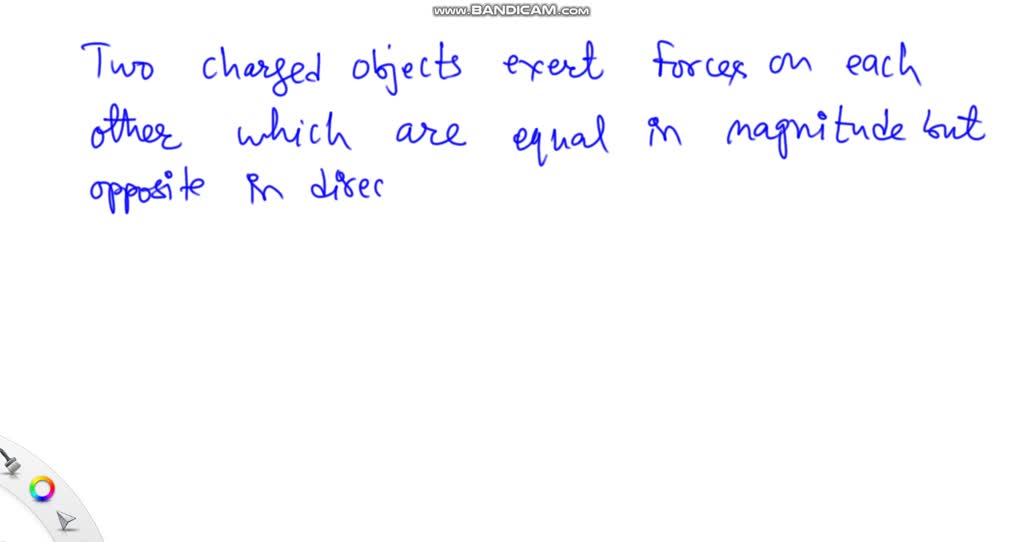 www.BANDICAM.com
Two charged objects exert forces on each
other which are equal in magnitude but
opposite in direc